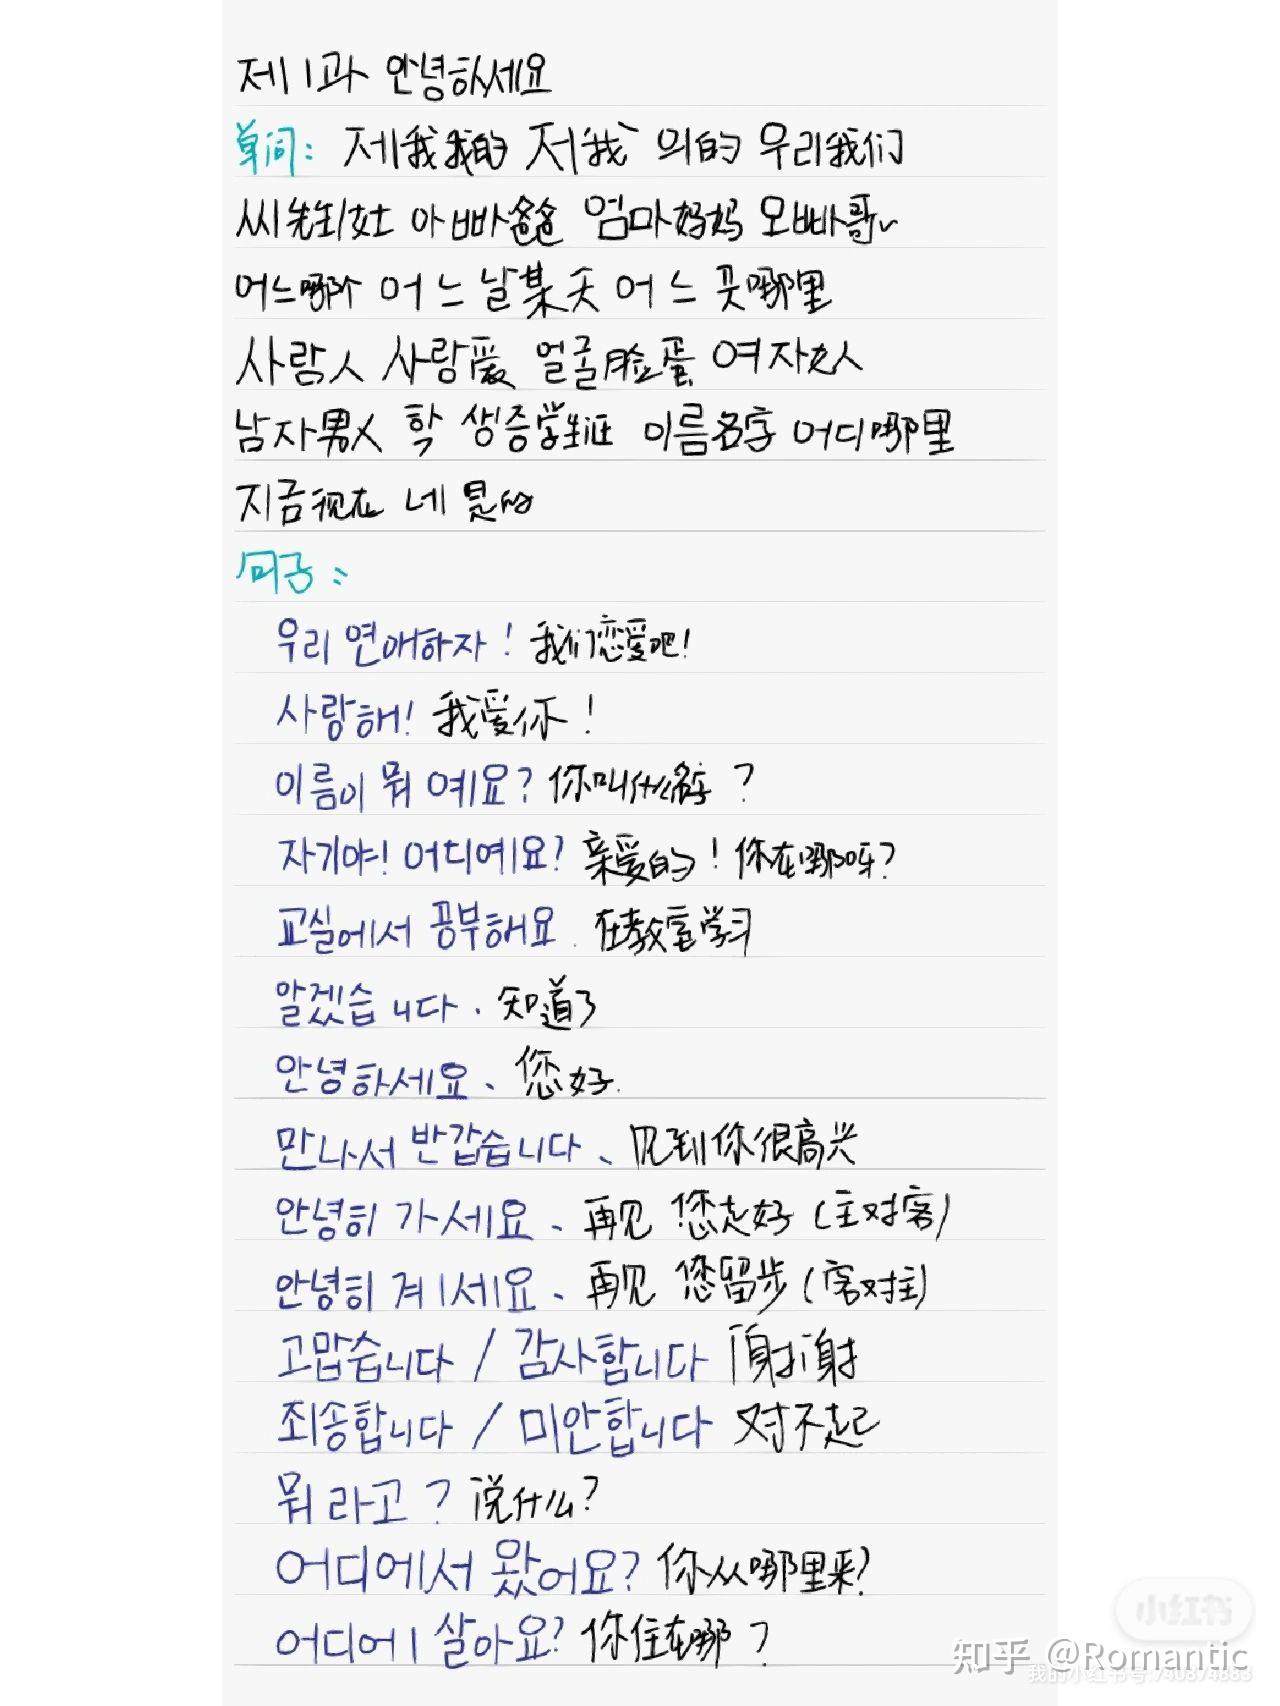 제1과 안녕하세요
单词: 제我我的 저我 의的 우리我们
씨先生/女士 아빠爸爸 엄마妈妈 오빠哥~
어느哪个 어느 날某天 어느 곳哪里
사람人 사랑爱 얼굴脸蛋 여자女人
남자男人 학생증学生证 이름名字 어디哪里
지금现在 네 是的
句子:
우리 연애하자! 我们恋爱吧!
사랑해! 我爱你!
이름이 뭐 예요? 你叫什么名字?
자기야! 어디예요? 亲爱的! 你在哪呀?
교실에서 공부해요. 在教室学习
알겠습니다. 知道了
안녕하세요、您好.
만나서 반갑습니다、见到你很高兴
안녕히 가세요、再见 您走好 (主对客)
안녕히 계세요、再见 您留步 (客对主)
고맙습니다 / 감사합니다 谢谢
죄송합니다 / 미안합니다 对不起
뭐라고? 说什么?
어디에서 왔어요? 你从哪里来?
어디에 살아요? 你住在哪?
小红书
知乎 @Romantic
我的小红书号:740874883